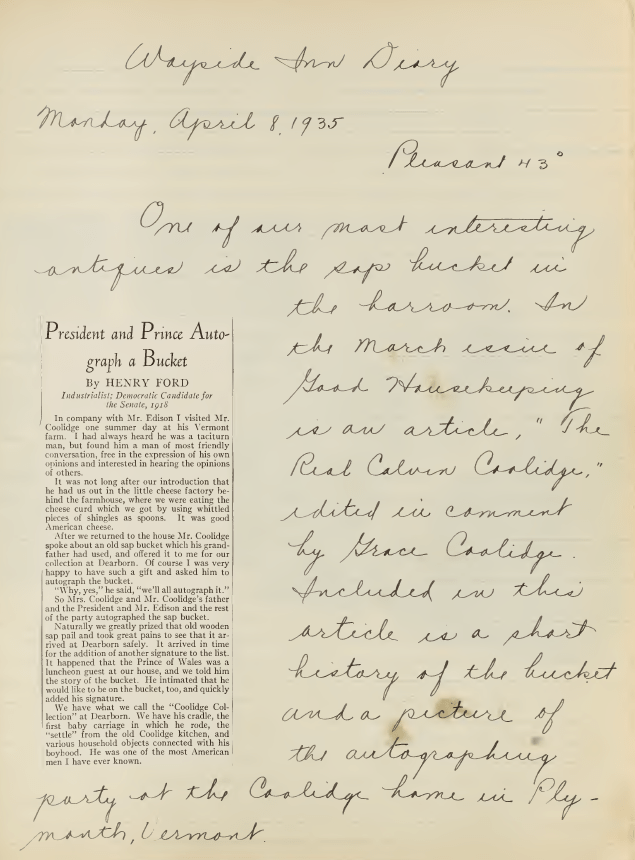 Wayside Inn Diary
Monday, April 8, 1935
Pleasant 43°
One of our most interesting
antiques is the sap bucket in
the barroom. In
the March issue of
Good Housekeeping
is an article, "The
Real Calvin Coolidge,"
edited in comment
by Grace Coolidge.
Included in this
article is a short
history of the bucket
and a picture of
the autographing
party at the Coolidge home in Ply-
mouth, Vermont.
President and Prince Auto-
graph a Bucket
By HENRY FORD
Industrialist; Democratic Candidate for
the Senate, 1918
In company with Mr. Edison I visited Mr.
Coolidge one summer day at his Vermont
farm. I had always heard he was a taciturn
man, but found him a man of most friendly
conversation, free in the expression of his own
opinions and interested in hearing the opinions
of others.
It was not long after our introduction that
he had us out in the little cheese factory be-
hind the farmhouse, where we were eating the
cheese curd which we got by using whittled
pieces of shingles as spoons. It was good
American cheese.
After we returned to the house Mr. Coolidge
spoke about an old sap bucket which his grand-
father had used, and offered it to me for our
collection at Dearborn. Of course I was very
happy to have such a gift and asked him to
autograph the bucket.
"Why, yes," he said, "we'll all autograph it."
So Mrs. Coolidge and Mr. Coolidge's father
and the President and Mr. Edison and the rest
of the party autographed the sap bucket.
Naturally we greatly prized that old wooden
sap pail and took great pains to see that it ar-
rived at Dearborn safely. It arrived in time
for the addition of another signature to the list.
It happened that the Prince of Wales was a
luncheon guest at our house, and we told him
the story of the bucket. He intimated that he
would like to be on the bucket, too, and quickly
added his signature.
We have what we call the "Coolidge Col-
lection" at Dearborn. We have his cradle, the
first baby carriage in which he rode, the
"settle" from the old Coolidge kitchen, and
various household objects connected with his
boyhood. He was one of the most American
men I have ever known.